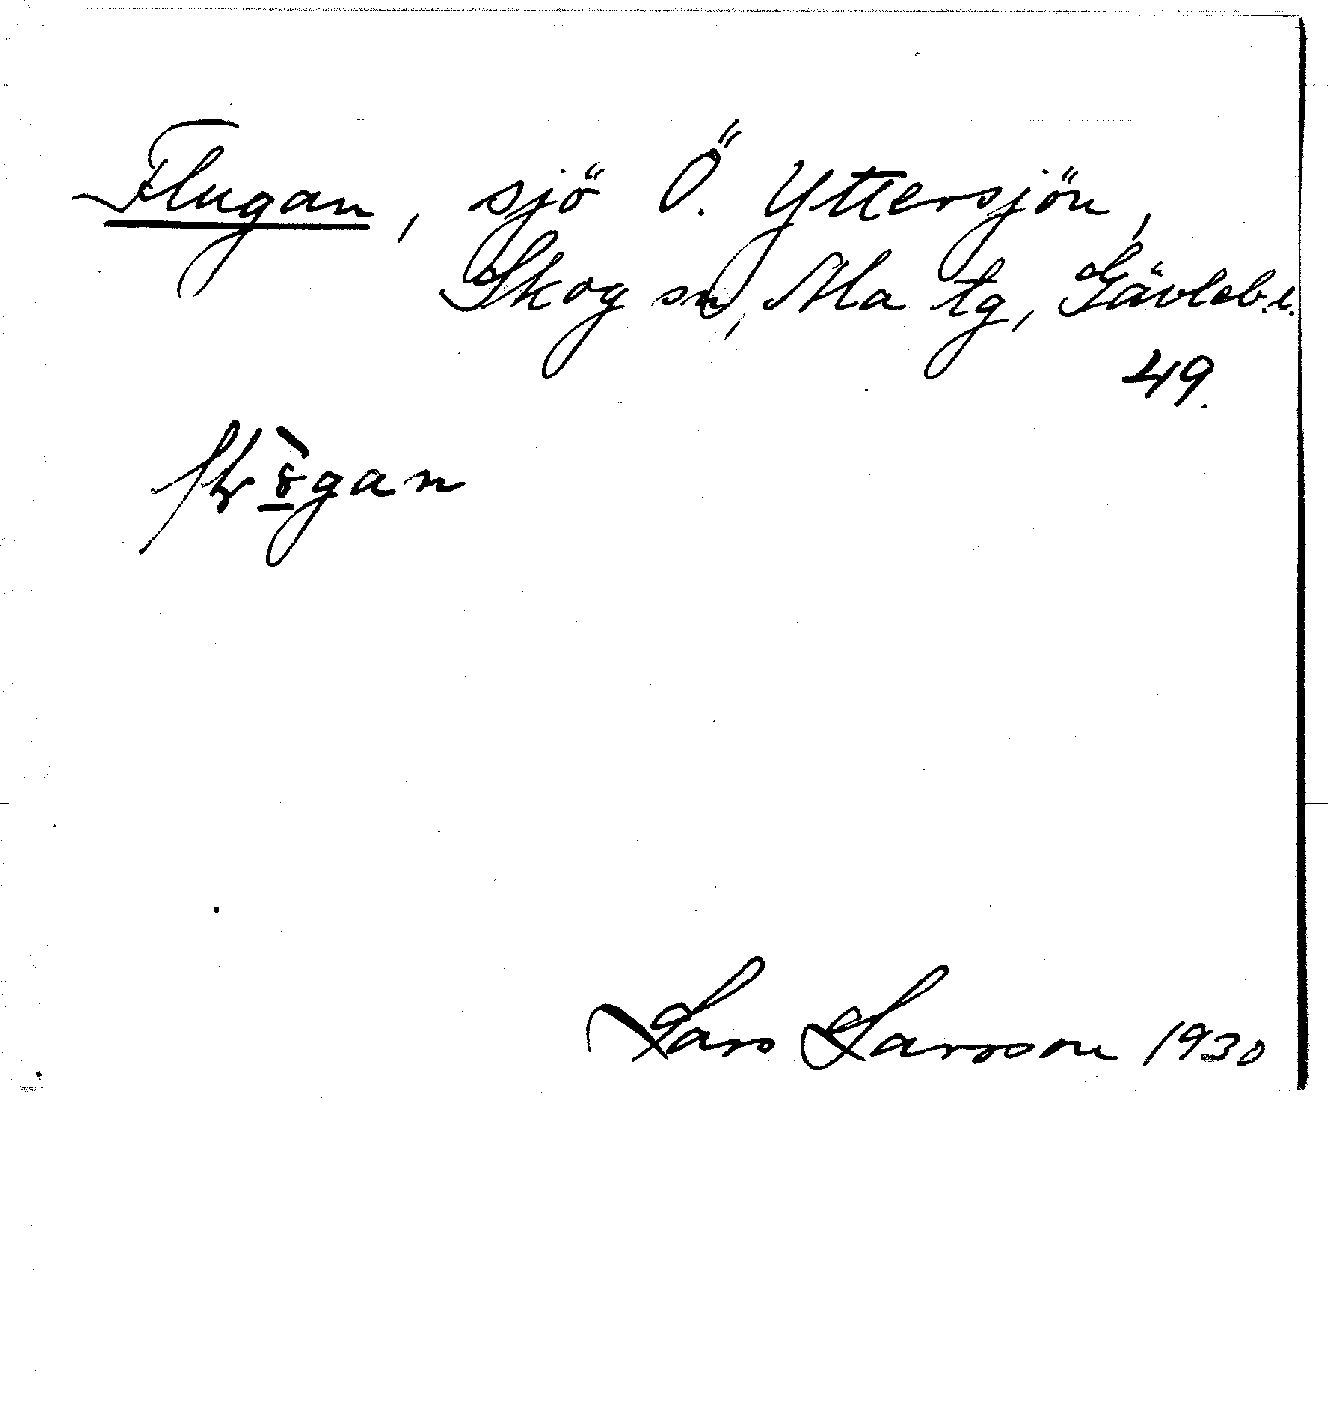 Flugan, sjö Ö. Yttersjön,
Skog sn, Ala tg, Gävleb. l.
49.
Lars Larsson 1930